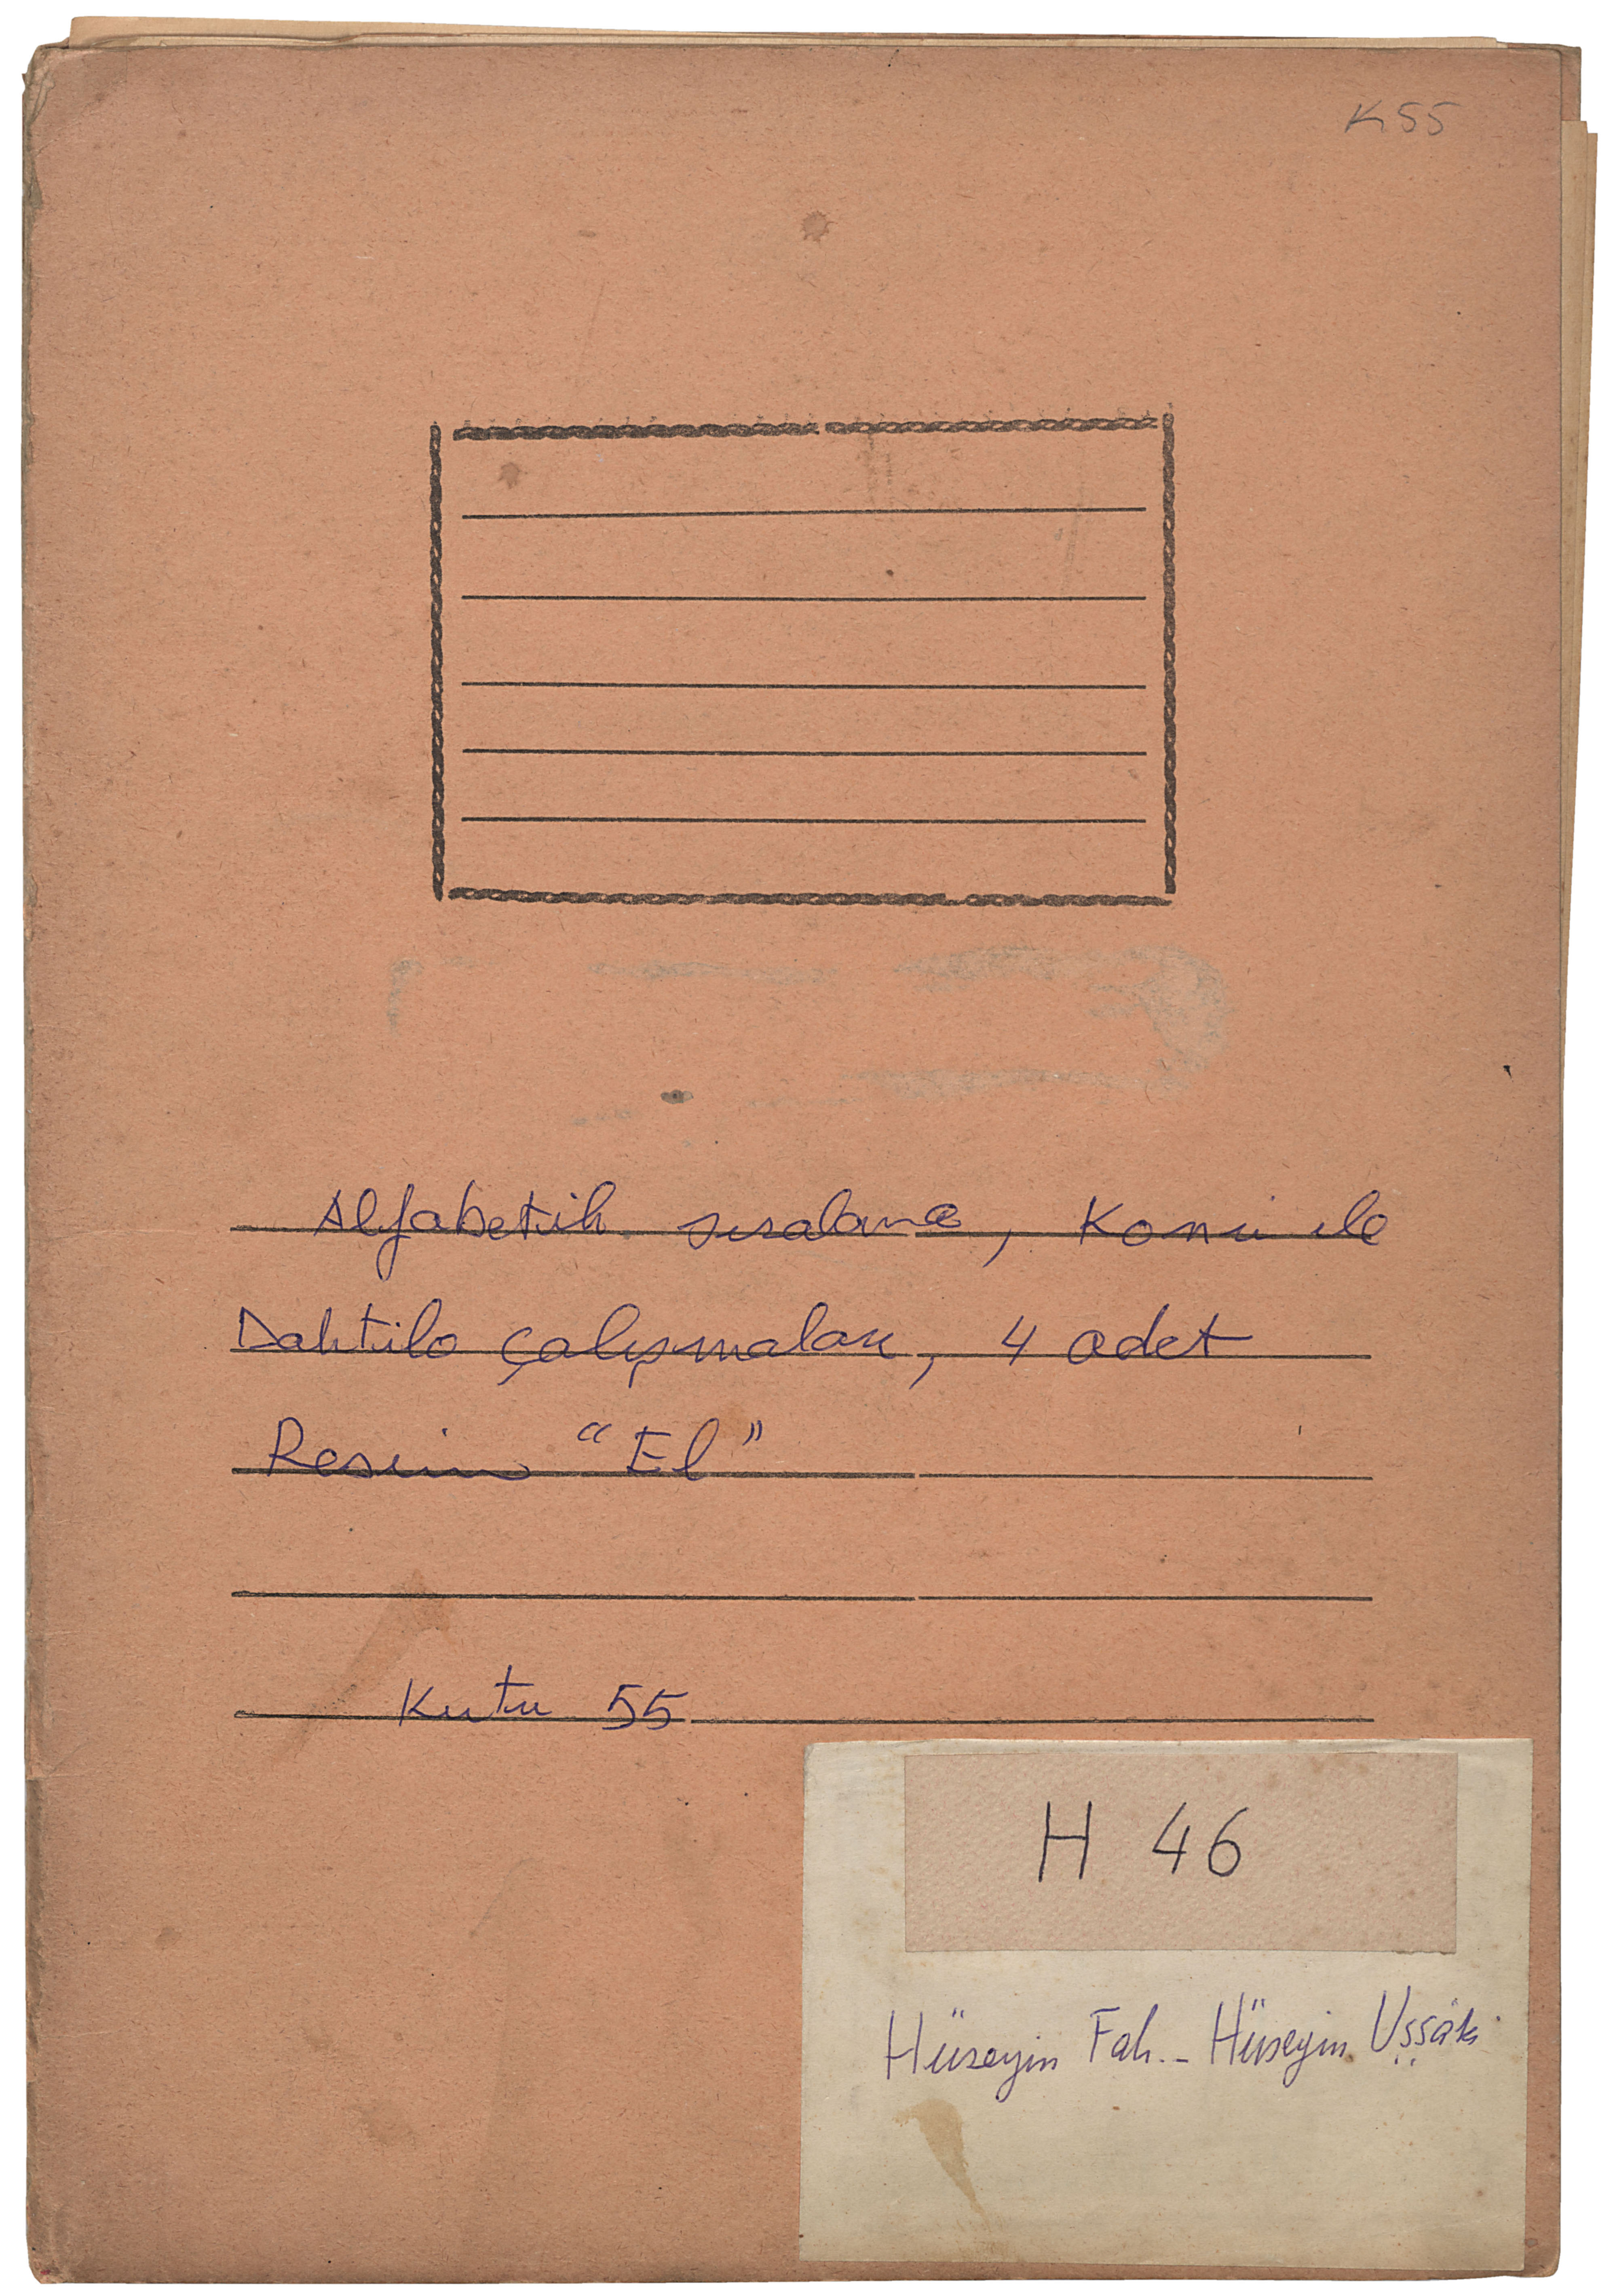 K55
Alfabetik sıralama, Konu ile
Daktilo çalışmaları, 4 adet
Resim "El"
Kutu 55
H 46
Hüseyin Fah.- Hüseyin Uşşâki